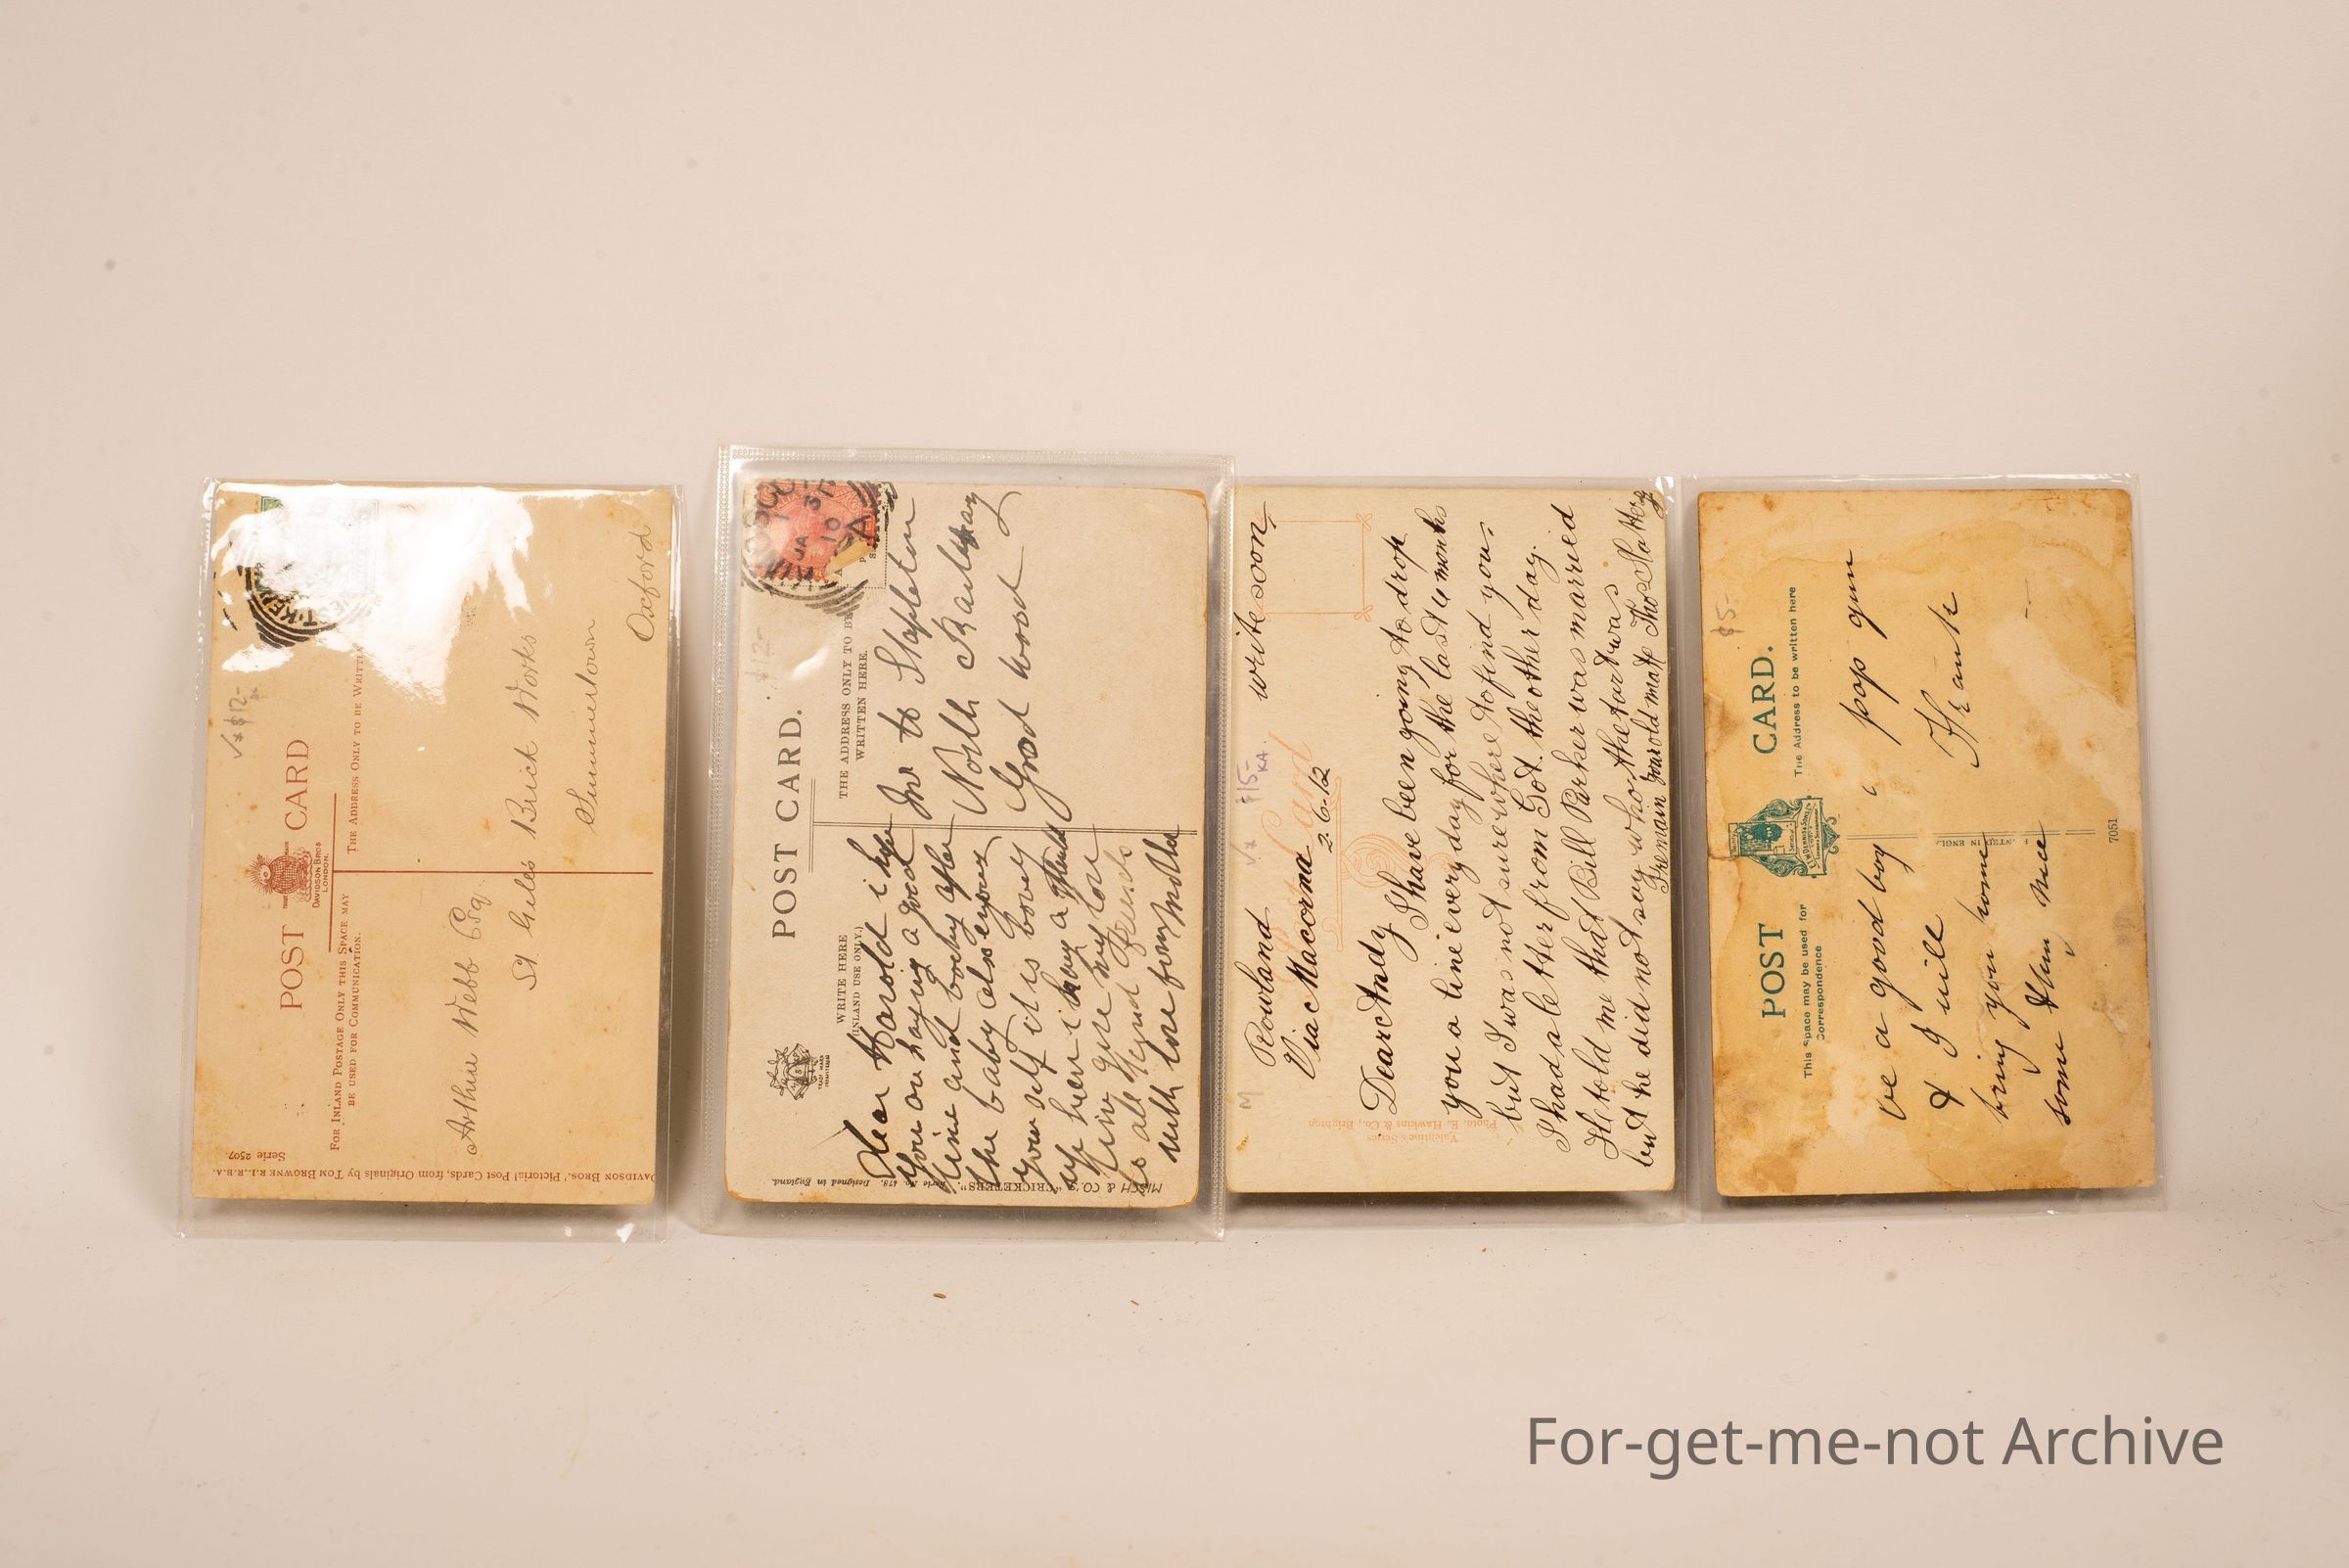 √x $12-
POST CARD
DAVIDSON BROS
LONDON.
FOR INLAND POSTAGE ONLY THIS SPACE MAY
BE USED FOR COMMUNICATION.
THE ADDRESS ONLY TO BE WRITTEN
Arthur Webb Esq.
St Giles Brick Works
Summertown
Oxford
DAVIDSON BROS.' Pictorial Post Cards, from Originals by TOM BROWNE R.I., R.B.A.
Serie 2507.
POST CARD.
WRITE HERE
(INLAND USE ONLY.)
THE ADDRESS ONLY TO BE
WRITTEN HERE.
TRADE MARK
JA 31
10
Dear Harold i hope
you are having a good
time and looking after
the baby also enjoy
your self it is lovely
up here i
give my love
to all friends
with love from mother
Mr to Stapleton
North Railway
Grod wood
MISCH & CO.'S "CRICKETERS".
Serie No. 478. Designed in England.
write soon
√x $15-
KA.
M
Rowland
Via Macorna 2.6.12
Card
Dear Andy I have been going to drop
you a line every day for the last 4 months
but I was not sure where to find you.
I had a letter from Got. the other day.
He told me that Bill Parker was married
but he did not say who the tart was
I remain your old mate Thos Slattery
Valentine's Series
Photo. E. Hawkins & Co., Brighton
$5-
POST CARD.
This Space may be used for
Correspondence
The Address to be written here
be a good boy
& I will
bring you home
some
pop gun
Frank
7051
For-get-me-not Archive